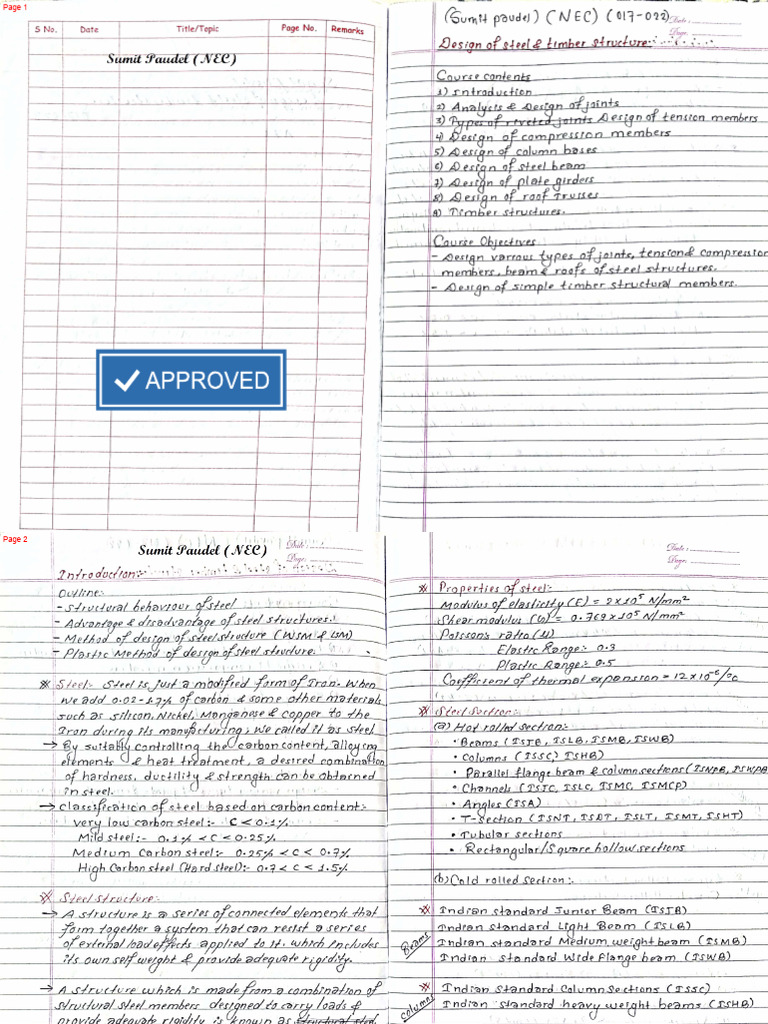 Page 1
S No. Date Title/Topic Page No. Remarks
Sumit Paudel (NEC)
APPROVED
(Sumit paudel) (NEC) (017-022) Date:
Page:
Design of steel & timber structure:
Course contents
1) Introduction
2) Analysis & Design of joints
3) Types of riveted joints Design of tension members
4) Design of compression members
5) Design of column bases
6) Design of steel beam
7) Design of plate girders
8) Design of roof Trusses
9) Timber structures.
Course Objectives
- Design various types of joints, tension & compression
members, beam & roofs of steel structures.
- Design of simple timber structural members.
Page 2
Sumit Paudel (NEC) Date:
Page:
Introduction:-
Outline:-
- Structural behaviour of steel
- Advantage & disadvantage of steel structures.
- Method of design of steel structure (WSM & LSM)
- Plastic Method of design of steel structure.
※ Steel:- Steel is just a modified form of Iron. When
we add 0.02-1.7% of carbon & some other materials
such as silicon, Nickel, Manganese & copper to the
Iron during its manufacturing, we called it as steel
→ By suitably controlling the carbon content, alloying
elements & heat treatment, a desired combination
of hardness, ductility & strength can be obtained
in steel.
→ Classification of steel based on carbon content:-
very low carbon steel:- C < 0.1%
Mild steel:- 0.1% < C < 0.25%
Medium Carbon steel:- 0.25% < C < 0.7%
High Carbon steel (Hard steel):- 0.7 < C < 1.5%
※ Steel structure:-
→ A structure is a series of connected elements that
form together a system that can resist a series
of external load effects applied to it, which includes
its own self weight & provide adequate rigidity.
→ A structure which is made from a combination of
structural steel members designed to carry loads &
provide adequate rigidity is known as structural steel
Date:
Page:
※ Properties of steel:-
Modulus of elasticity (E) = 2×10⁵ N/mm²
Shear modulus (G) = 0.769×10⁵ N/mm²
Poisson's ratio (μ)
Elastic Range:- 0.3
Plastic Range:- 0.5
Coefficient of thermal expansion = 12×10⁻⁶/°C
※ Steel Section:-
(a) Hot rolled section:-
• Beams (ISJB, ISLB, ISMB, ISWB)
• Columns (ISSC, ISHB)
• Parallel flange beam & column sections (ISNPB, ISWPB
• Channels (ISJC, ISLC, ISMC, ISMCP)
• Angles (ISA)
• T-section (ISNT, ISDT, ISLT, ISMT, ISHT)
• Tubular sections
• Rectangular/Square hollow sections
(b) Cold rolled section:-
※ Indian standard Junior Beam (ISJB)
Indian standard Light Beam (ISLB)
Beams Indian standard Medium weight beam (ISMB)
Indian standard Wide flange beam (ISWB)
※ Indian standard Column Sections (ISSC)
columns Indian standard heavy weight beams (ISHB)